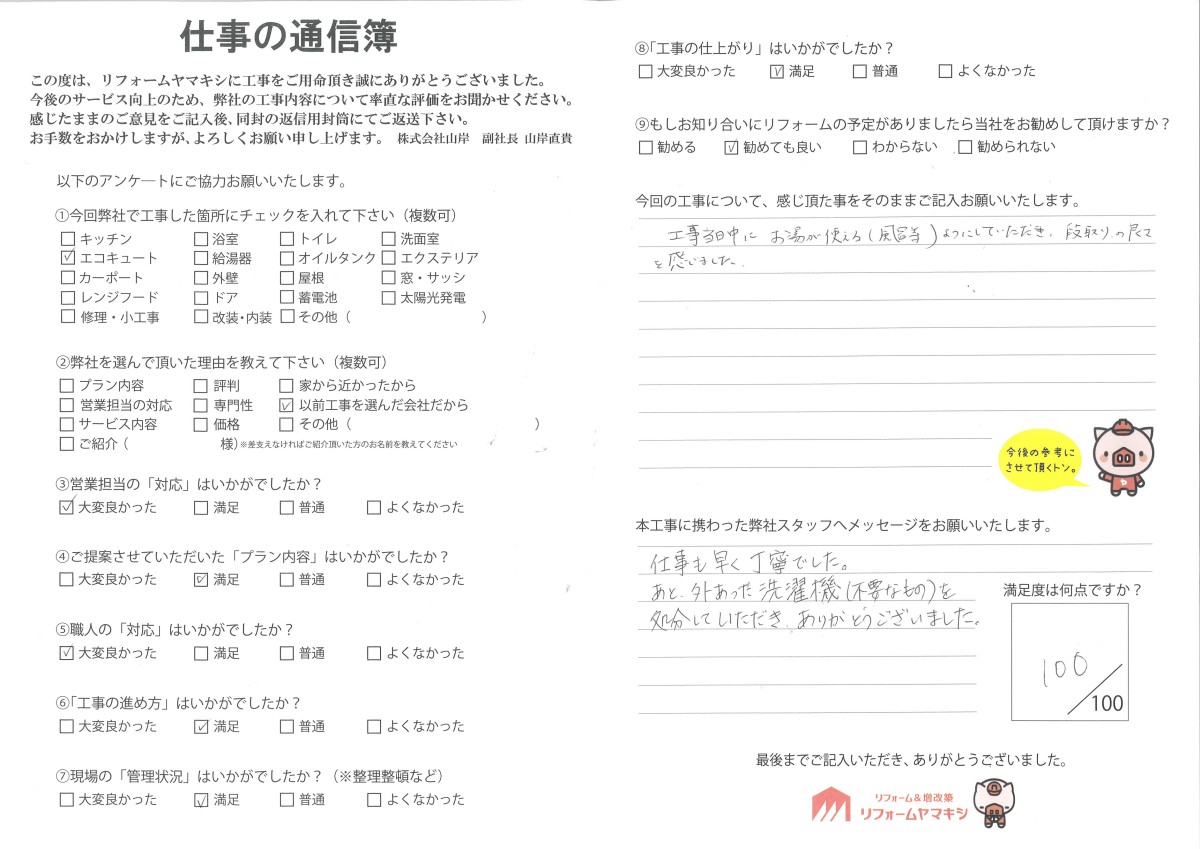 仕事の通信簿
この度は、リフォームヤマキシに工事をご用命頂き誠にありがとうございました。
今後のサービス向上のため、弊社の工事内容について率直な評価をお聞かせください。
感じたままのご意見をご記入後、同封の返信用封筒にてご返送下さい。
お手数をおかけしますが、よろしくお願い申し上げます。 株式会社山岸 副社長 山岸直貴
以下のアンケートにご協力お願いいたします。
①今回弊社で工事した箇所にチェックを入れて下さい（複数可）
□キッチン □浴室 □トイレ □洗面室
☑エコキュート □給湯器 □オイルタンク □エクステリア
□カーポート □外壁 □屋根 □窓・サッシ
□レンジフード □ドア □蓄電池 □太陽光発電
□修理・小工事 □改装・内装 □その他（ ）
②弊社を選んで頂いた理由を教えて下さい（複数可）
□プラン内容 □評判 □家から近かったから
□営業担当の対応 □専門性 ☑以前工事を選んだ会社だから
□サービス内容 □価格 □その他（ ）
□ご紹介（ 様）※差支えなければご紹介頂いた方のお名前を教えてください
③営業担当の「対応」はいかがでしたか？
☑大変良かった □満足 □普通 □よくなかった
④ご提案させていただいた「プラン内容」はいかがでしたか？
□大変良かった ☑満足 □普通 □よくなかった
⑤職人の「対応」はいかがでしたか？
☑大変良かった □満足 □普通 □よくなかった
⑥「工事の進め方」はいかがでしたか？
□大変良かった ☑満足 □普通 □よくなかった
⑦現場の「管理状況」はいかがでしたか？（※整理整頓など）
□大変良かった ☑満足 □普通 □よくなかった
⑧「工事の仕上がり」はいかがでしたか？
□大変良かった ☑満足 □普通 □よくなかった
⑨もしお知り合いにリフォームの予定がありましたら当社をお勧めして頂けますか？
□勧める ☑勧めても良い □わからない □勧められない
今回の工事について、感じ頂た事をそのままご記入お願いいたします。
工事当日中に お湯が使える（風呂等）ようにしていただき、段取りの良さ
を感じました。
今後の参考に
させて頂くトン。
本工事に携わった弊社スタッフへメッセージをお願いいたします。
仕事も早く丁寧でした。
あと、外あった洗濯機（不要なもの）を
処分していただき、ありがとうございました。
満足度は何点ですか？
100
/100
最後までご記入いただき、ありがとうございました。
リフォーム＆増改築
リフォームヤマキシ